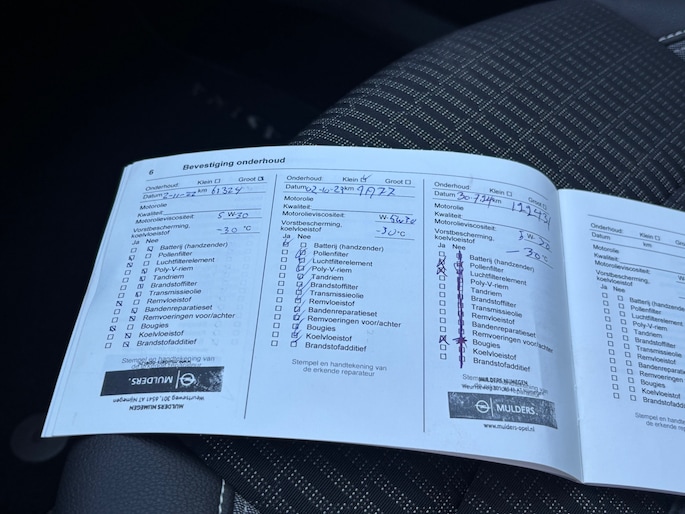 6 Bevestiging onderhoud
Onderhoud: Klein Groot
Datum 2-11-22 km 61324
Motorolie
Kwaliteit:
Motorolieviscositeit: 5 W-30
Vorstbescherming,
koelvloeistof -30 °C
Ja Nee
Batterij (handzender)
Pollenfilter
Luchtfilterelement
Poly-V-riem
Tandriem
Brandstoffilter
Transmissieolie
Remvloeistof
Bandenreparatieset
Remvoeringen voor/achter
Bougies
Koelvloeistof
Brandstofadditief
Stempel en handtekening van
de erkende reparateur
MULDERS.
MULDERS NIJMEGEN
Weurtseweg 301, 6541 AT Nijmegen
Onderhoud: Klein Groot
Datum 02-10-23 km
Motorolie
Kwaliteit:
Motorolieviscositeit: W-
Vorstbescherming,
koelvloeistof -30 °C
Ja Nee
Batterij (handzender)
Pollenfilter
Luchtfilterelement
Poly-V-riem
Tandriem
Brandstoffilter
Transmissieolie
Remvloeistof
Bandenreparatieset
Remvoeringen voor/achter
Bougies
Koelvloeistof
Brandstofadditief
Stempel en handtekening van
de erkende reparateur
Onderhoud: Klein Groot
Datum km
Motorolie
Kwaliteit:
Motorolieviscositeit: W- 30
Vorstbescherming,
koelvloeistof -30 °C
Ja Nee
Batterij (handzender)
Pollenfilter
Luchtfilterelement
Poly-V-riem
Tandriem
Brandstoffilter
Transmissieolie
Remvloeistof
Bandenreparatieset
Remvoeringen voor/achter
Bougies
Koelvloeistof
Brandstofadditief
MULDERS NIJMEGEN
MULDERS
www.mulders-opel.nl
Onderhoud: Klein
Datum km
Motorolie
Kwaliteit:
Motorolieviscositeit:
Vorstbescherming,
koelvloeistof
Ja Nee
Batterij (handzender)
Pollenfilter
Luchtfilterelement
Poly-V-riem
Tandriem
Brandstoffilter
Transmissieolie
Remvloeistof
Bandenreparatieset
Remvoeringen
Bougies
Koelvloeistof
Brandstofadditief
Stempel en
de erkende